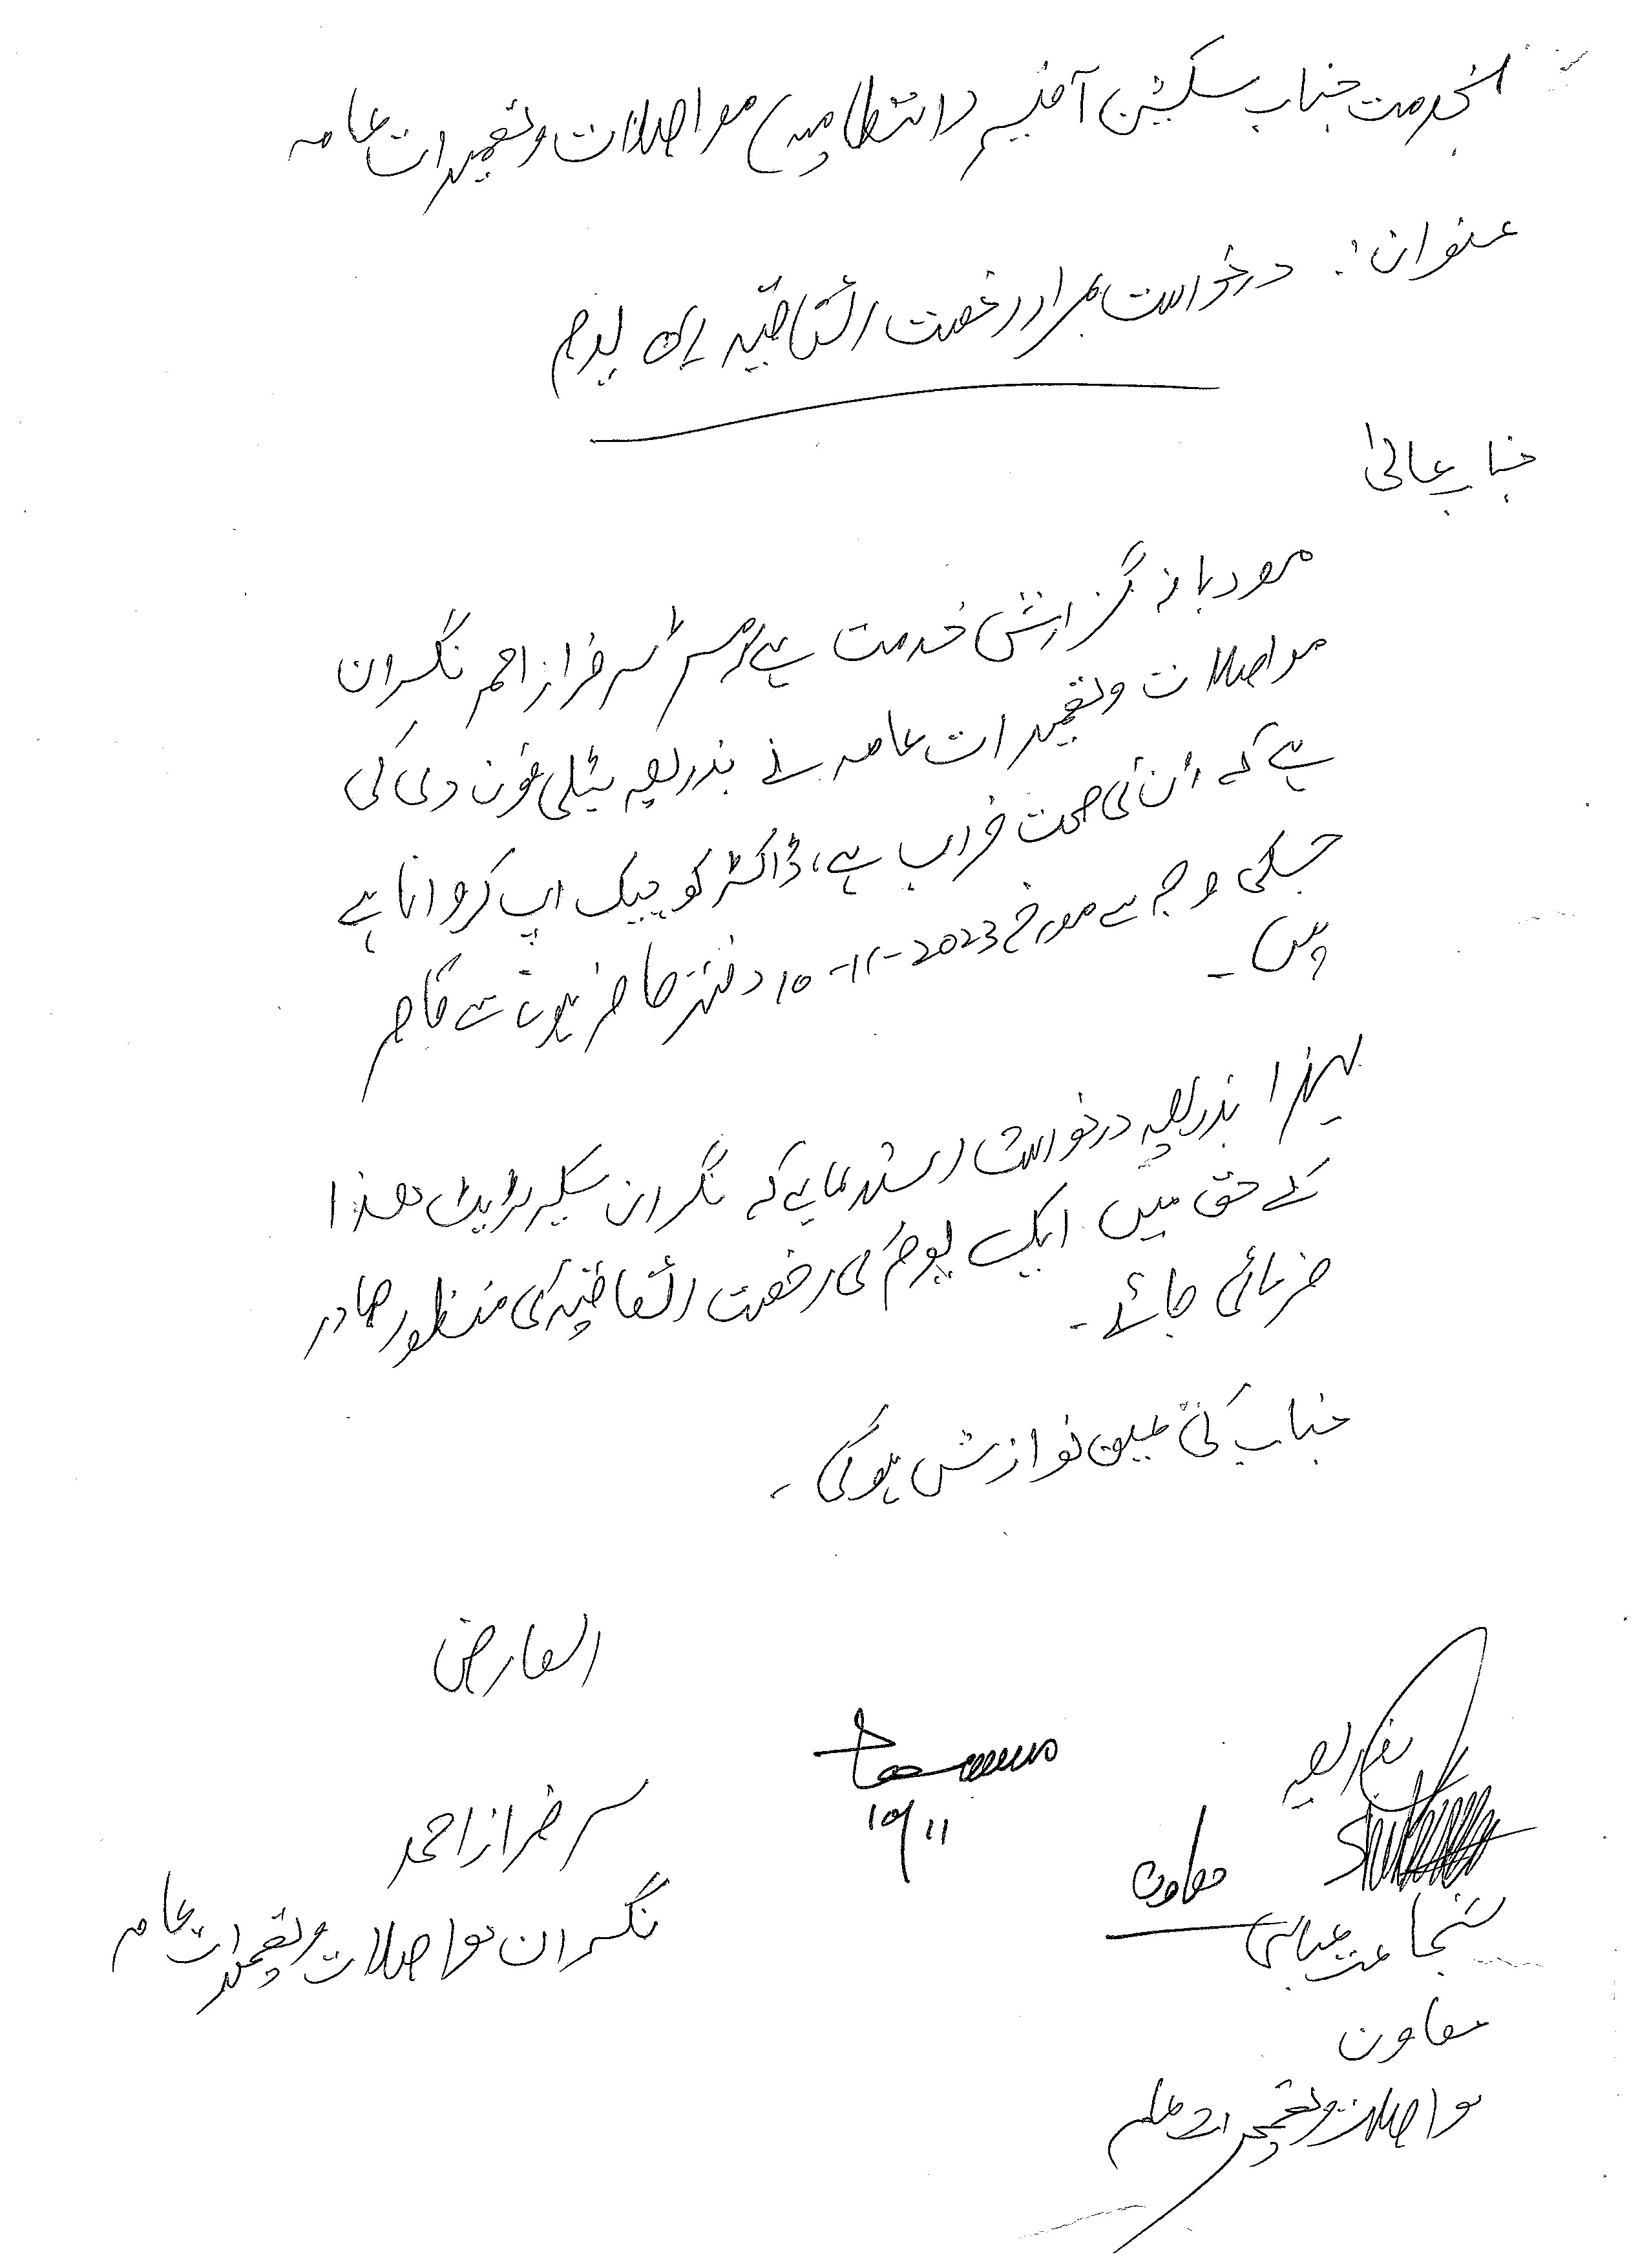 بخدمت جناب سیکشن آفیسر (انتظامیہ) مواصلات وتعمیرات عامہ
عنوان:۔ درخواست بمراد رخصت اتفاقیہ ایک یوم
جناب عالیٰ
مودبانہ گزارش خدمت ہے کہ مسٹر سرفراز احمد نگران
مواصلات وتعمیرات عامہ نے بذریعہ ٹیلی فون دی کی
ہے کہ اُن کی صحت خراب ہے، ڈاکٹر کو چیک اپ کروانا ہے
جسکی وجہ سے مورخہ 10-11-2023 دفتر حاضر ہونے سے قاصر
ہیں۔
لہذا بذریعہ درخواست استدعا ہے کہ نگران سیکریٹریٹ ھذا
کے حق میں ایک یوم کی رخصت اتفاقیہ کی منظور صادر
فرمائی جائے۔
جناب کی عین نوازش ہوگی۔
العارض
سرفراز احمد
نگران مواصلات وتعمیرات عامہ
10/11
بذریعہ
معاون
شجاعت عباسی
معاون
مواصلات وتعمیرات عامہ